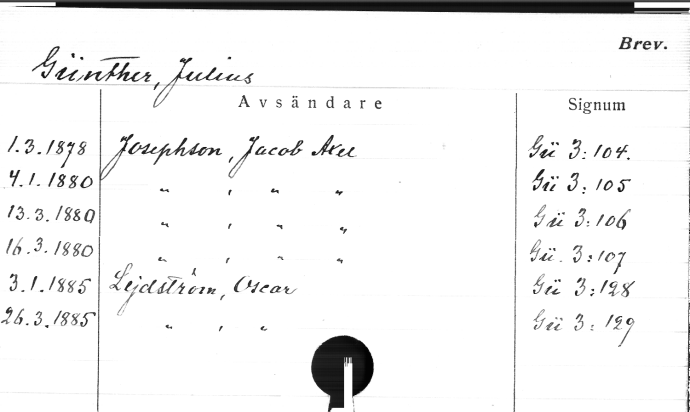 Brev.
Günther, Julius
Avsändare Signum
1.3.1878 Josephson, Jacob Axel Gü 3:104.
4.1.1880 " , " " Gü 3:105
13.3.1880 " , " " Gü 3:106
16.3.1880 " , " " Gü. 3:107
3.1.1885 Lejdström, Oscar Gü 3:128
26.3.1885 " , " Gü 3:129